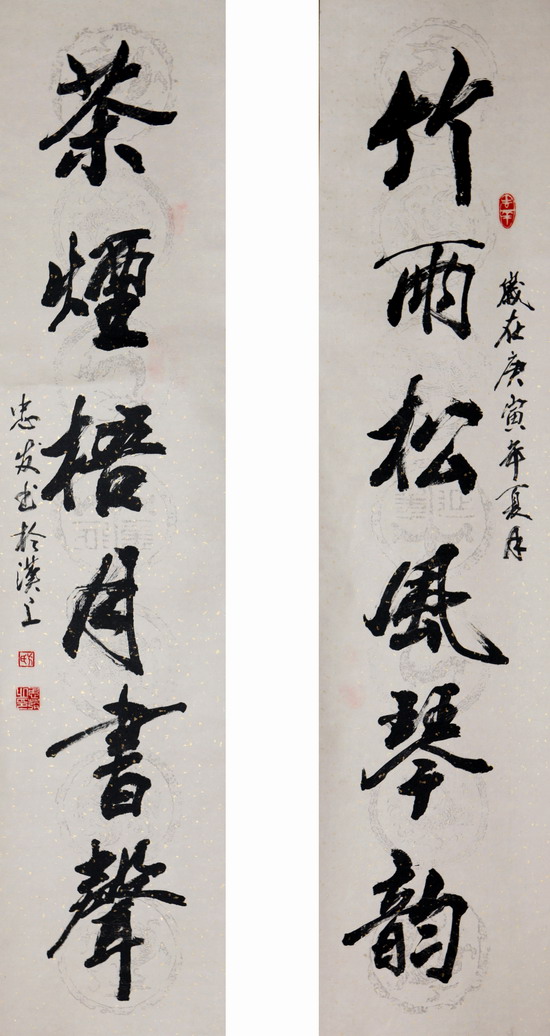 歲在庚寅年夏月
竹雨松風琴韵
茶煙梧月書聲
忠发书於漢上